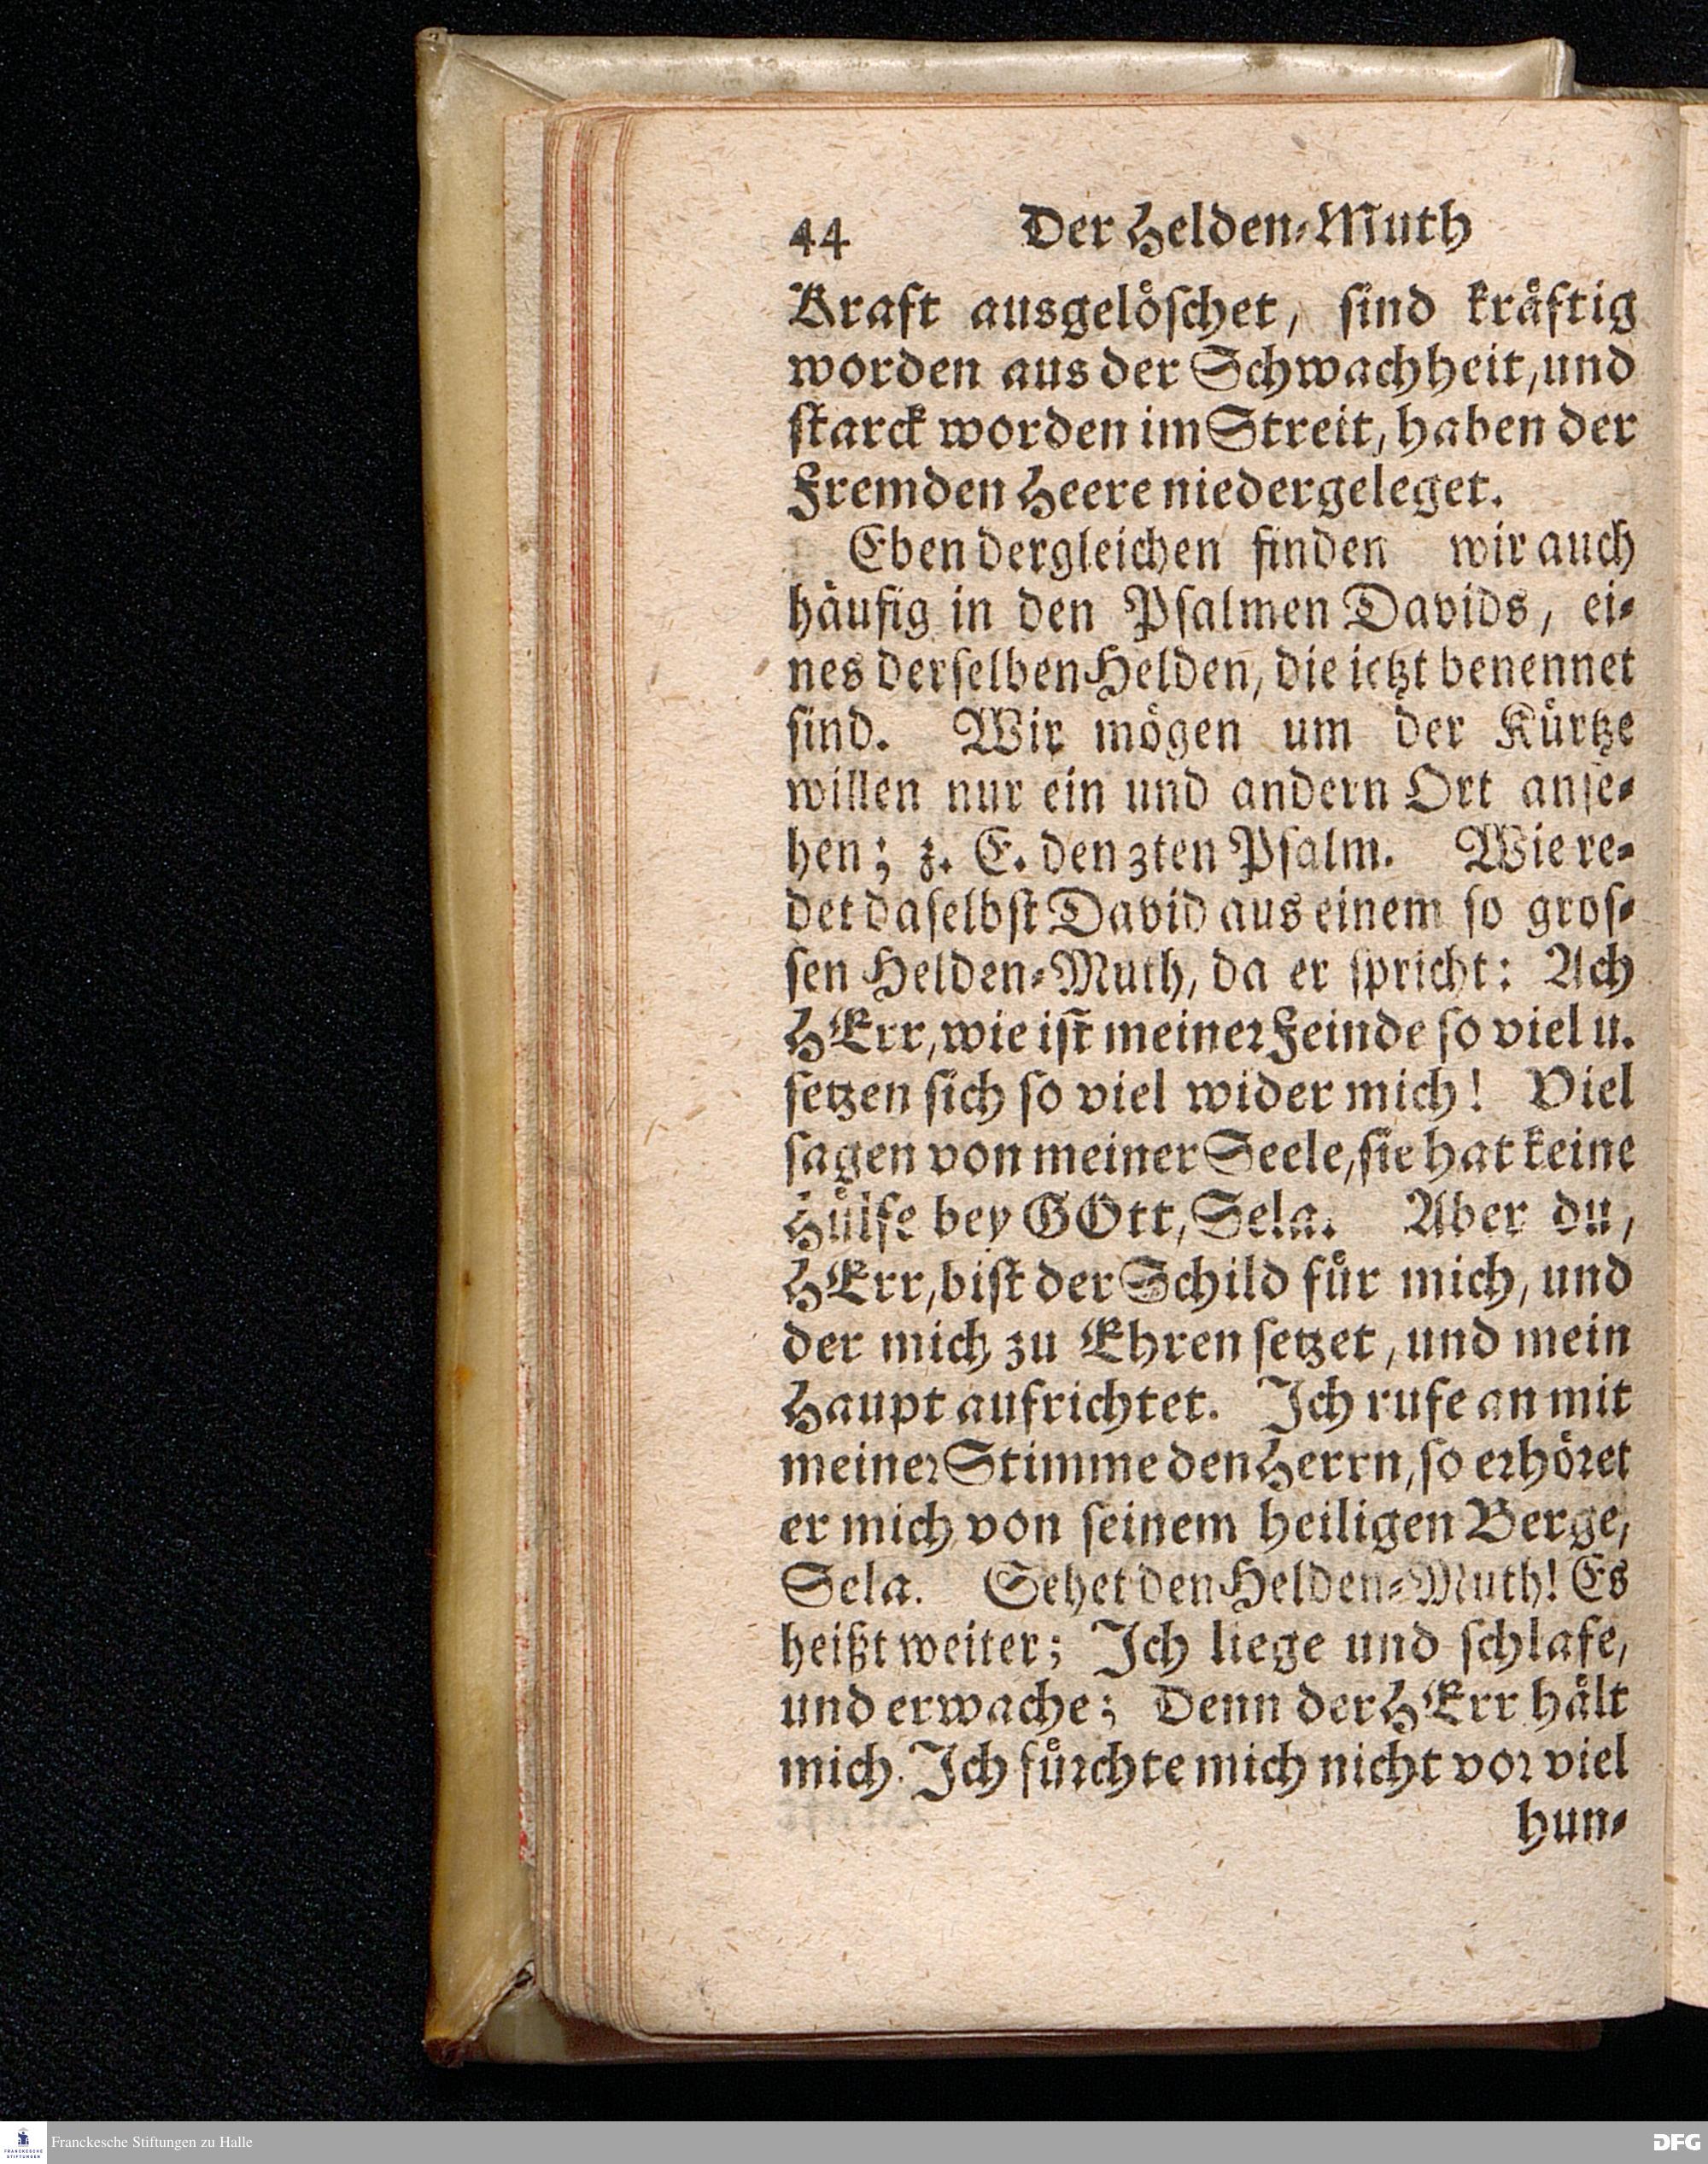 44 Der Helden-Muth
Kraft ausgelöschet, sind kräftig
worden aus der Schwachheit, und
starck worden im Streit, haben der
Fremden Heere niedergeleget.
Eben dergleichen finden wir auch
häufig in den Psalmen Davids, ei-
nes derselben Helden, die ietzt benennet
sind. Wir mögen um der Kürtze
willen nur ein und andern Ort anse-
hen; z. E. den 3ten Psalm. Wie re-
det daselbst David aus einem so gros-
sen Helden-Muth, da er spricht: Ach
HErr, wie ist meiner Feinde so viel u.
setzen sich so viel wider mich! Viel
sagen von meiner Seele, sie hat keine
Hülfe bey GOtt, Sela. Aber du,
HErr, bist der Schild für mich, und
der mich zu Ehren setzet, und mein
Haupt aufrichtet. Ich rufe an mit
meiner Stimme den Herrn, so erhöret
er mich von seinem heiligen Berge,
Sela. Sehet den Helden-Muth! Es
heißt weiter; Ich liege und schlafe,
und erwache; Denn der HErr hält
mich. Ich fürchte mich nicht vor viel
hun-
FRANCKESCHE
STIFTUNGEN
Franckesche Stiftungen zu Halle
DFG